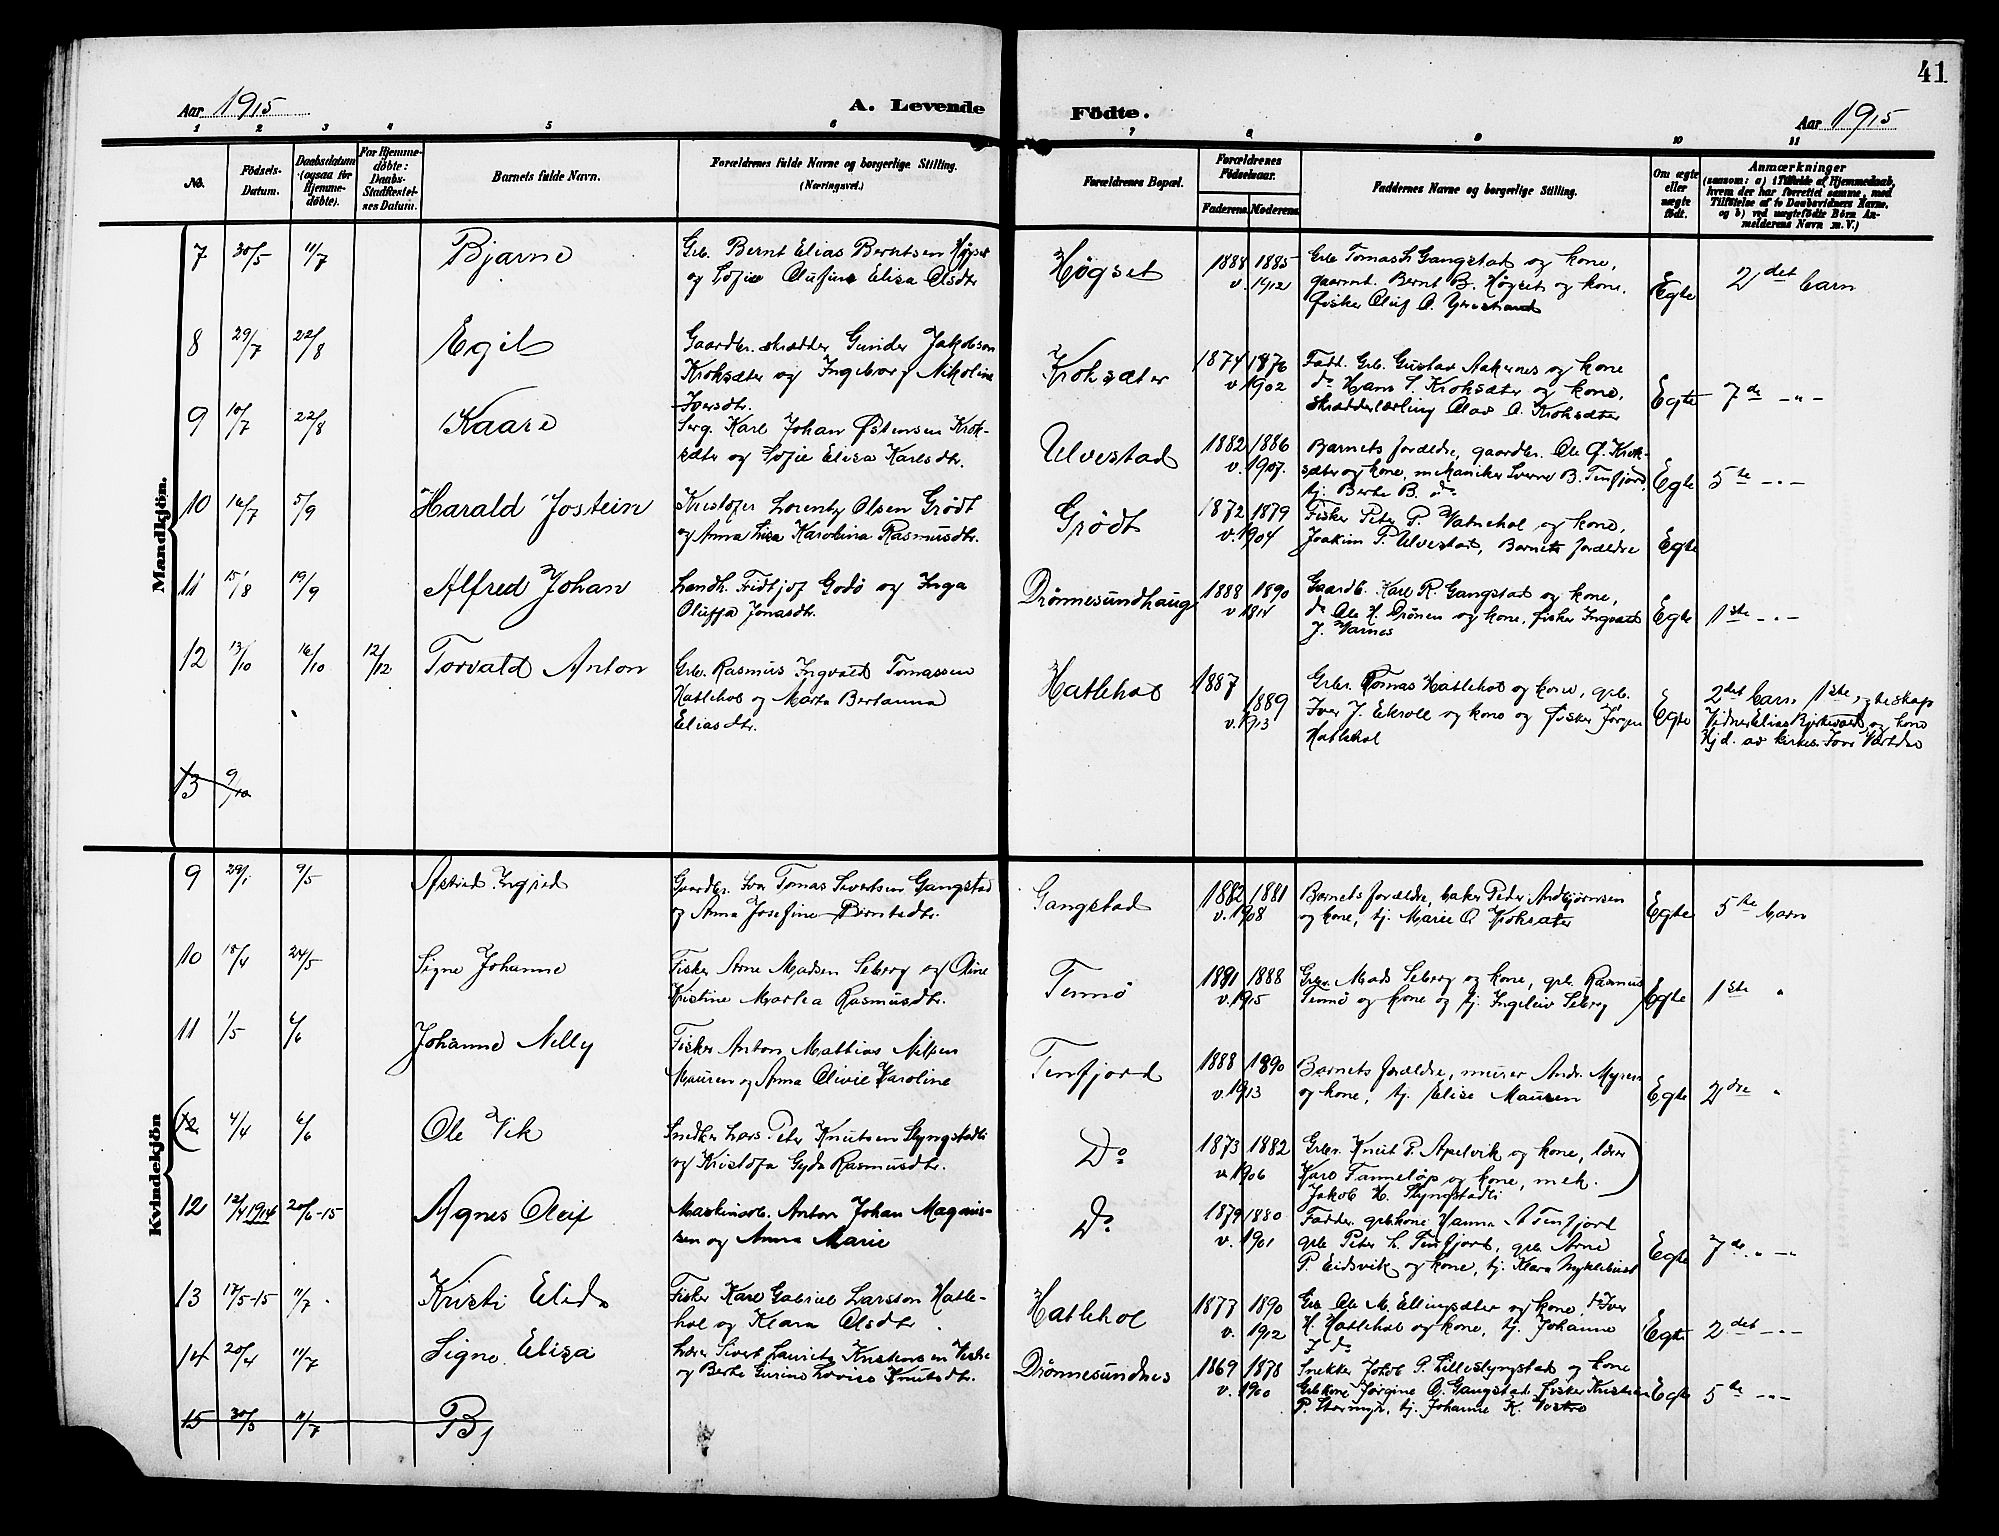 41
Aar 1915
A. Levende
Födte.
Aar 1915
1 2 3 4 5 6 7 8 9 10 11
No.
Födsels-
Datum.
Daabsdatum
(ogsaa for
Hjemme-
döbte).
For Hjemme-
döbte:
Daabs-
Stadfæstel-
ses Datum.
Barnets fulde Navn.
Forældrenes fulde Navne og borgerlige Stilling.
(Næringsvei.)
Forældrenes Bopæl.
Forældrenes
Födselsaar.
Faderens. Moderens.
Faddernes Navne og borgerlige Stilling.
Om ægte
eller
uægte
födt.
Anmærkninger
(saasom: a) i Tilfælde af Hjemmedaab,
hvem der har forrettet samme, med
Tilföielse af to Daabsvidners Navne,
og b) ved uægtefödte Börn An-
melderens Navn m. V.)
Mandkjön.
7 30/5 11/7 Bjarne
Grb. Bernt Elias Berntsen Høgset
og Sofie Olufine Elisa Olsdtr
Høgset
1888 1885
v. 1912
Grb Tomas L Gangstad og kone,
gaarmt. Bernt B. Høgset og kone,
fisker Oluf O. Ytrestrand
Egte
2det barn
8 29/7 22/8 Egil
Gaardbr. skrædder Gunder Jakobson
Kroksæter og Ingeborg Nikoline
Iversdtr.
Kroksæter
1874 1876
v. 1902
Fadt. Grb. Gustav Aakernes og kone
do Hans S. Kroksæter og kone,
skrædderlærling Olav O. Kroksæter
Egte
7de -"-
9 10/7 22/8 Kaare
Serg. Karl Johan Østensen Krok-
sæter og Sofie Elisa Karlsdtr.
Ulvestad
1882 1886
v. 1907.
Barnets forældre, gaardbr. Ole G. Krok-
sæter og kone, mekaniker Sverre B. Tenfjord,
tj. Berte B. do
Egte
5te -"-
10 16/7 5/9 Harald Jostein
Kristofer Lorentz Olsen Grødt
og Anna Lisa Karolina Rasmusdtr.
Grødt
1872 1879
v. 1904
Fisker Peter P. Vatnehol og kone,
Joakim P. Ulvestad, Barnets forældre
Egte
11 15/8 19/9 Alfred Johan
Landh. Fridtjof Godø og Inga
Oluffa Jonasdtr.
Drönnesundhaug
1888 1890
v. 1914
Gaardb. Karl R. Gangstad og kone,
do Ole H. Drönen og kone, fisker Ingvald
J. Varnes
Egte
1ste -"-
12 13/10 16/10 12/12 Torvald Anton
Grb. Rasmus Ingvald Tomassen
Hatlehol og Marta Bertanna
Eliasdtr.
Hatlehol
1887 1889
v. 1913
Grbr. Tomas Hatlehol og kone, grb.
Iver J. Eikroll og kone og fisker Jørgen
Hatlehol
Egte
2det barn 1ste egteskap
Vidner Elias Bjerkevold og kone
Hjd. av kirkes. Iver Vartdal
13 9/10
Kvindekjön
9 29/1 9/5 Astrid Ingrid
Gaardbr. Iver Tomas Sivertsen Gangstad
og Anna Josefine Berntsdtr.
Gangstad
1882 1881
v. 1908
Barnets forældre, baker Peter Andbjørnsen
og kone, tj. Marie O. Kroksæter
Egte
5te barn
10 18/4 24/5 Signe Johanne
Fisker Arne Madsen Leberg og Oline
Kristine Marta Rasmusdtr.
Tennö
1881 1888
v. 1915
Grbr. Mads Leberg og kone, grb. Rasmus
Tennö og kone og tj. Ingeleiv Leberg
Egte
1ste "
11 1/5 6/6 Johanne Nelly
Fisker Anton Mattias Nilsen
Mauren og Anna Olivie Karoline
Tenfjord
1888 1890
v. 1913
Barnets forældre, murer Andr. Myren
og kone, tj. Elise Mauren
Egte
2dre "
(12 4/4 6/6 Ole Vik
Snedker Lars Peter Knutsen Slyngstadli
og Kristofa Gyda Rasmusdtr.
Do
1873 1882
v. 1906
Grbr. Knut P. Apelvik og kone, lærer
Karl Tanneløp og kone, mek.
Jakob K. Slyngstadli
12 12/4 1914 20/6-15 Agnes Oleif
Maskinarb. Anton Johan Magnus-
sen og Anna Marie
Do
1879 1880
v. 1901
Fadder. grbkone Hanna A Tenfjord
grb. Peter L. Tenfjord, grb. Arne
P. Eidsvik og kone, tj. Klara Nyklebust
Egte
7de " -"-
13 17/5-15 11/7 Kristi Elida
Fisker Karl Gabriel Larsson Hatle-
hol og Klara Olsdtr.
Hatlehol
1877 1890
v. 1912
Grb Ole M. Ellingsæter og kone. do Iver
H. Hatlehol og kone, tj. Johanne
J. do
Egte
2det -"-
14 20/4 11/7 Signe Elisa
Lærer Sivert Lauritz Kristensen Vestre
og Berte Gurine Lovise Knutsdtr.
Drönnesundnes
1869 1878
v. 1900
Snekker Jakob P. Lilleslyngstad og kone
Grbkone Jørgine O. Gangstad, fisker Kristian
P. Storungh, tj. Johanne K. Vestre
Egte
5te -"-
15 30/5 11/7 Bj